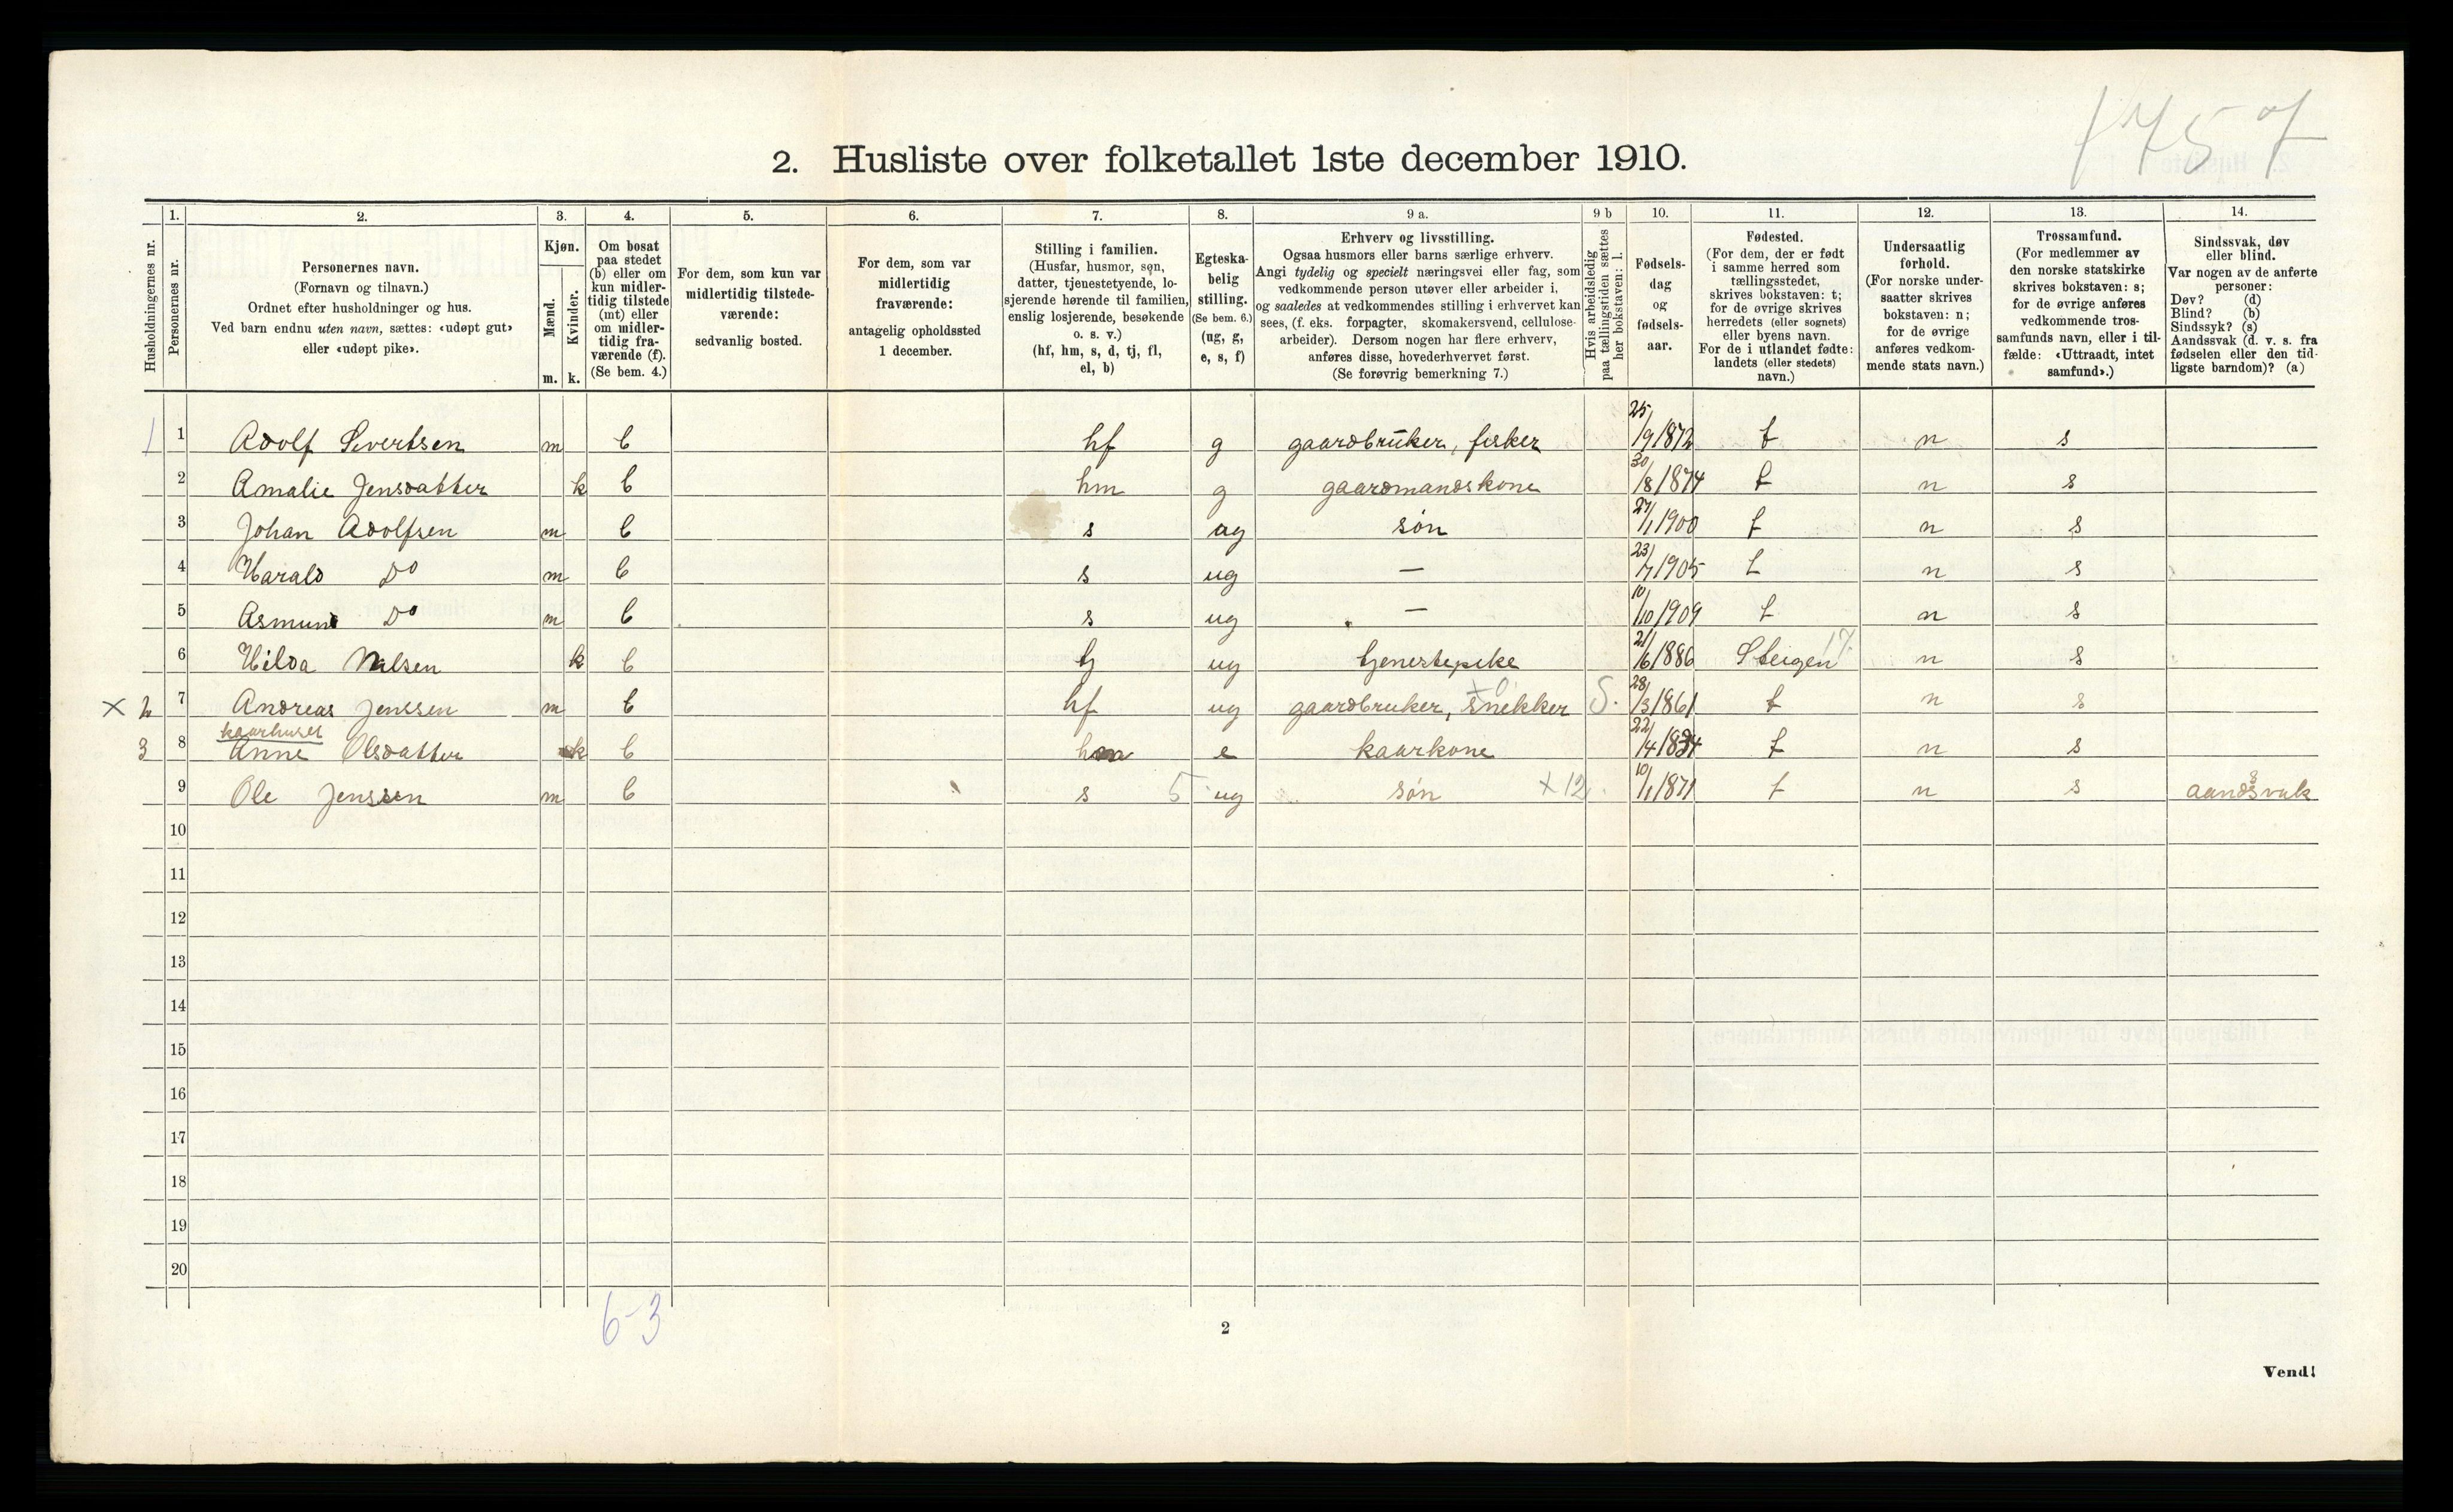 1757
2. Husliste over folketallet 1ste december 1910.
Husholdningernes nr.
1. Personernes nr.
2. Personernes navn. (Fornavn og tilnavn.) Ordnet efter husholdninger og hus. Ved barn endnu uten navn, sættes: «udøpt gut» eller «udøpt pike».
3. Kjøn. Mænd. m. Kvinder. k.
4. Om bosat paa stedet (b) eller om kun midler-tidig tilstede (mt) eller om midler-tidig fra-værende (f). (Se bem. 4.)
5. For dem, som kun var midlertidig tilstede-værende: sedvanlig bosted.
6. For dem, som var midlertidig fraværende: antagelig opholdssted 1 december.
7. Stilling i familien. (Husfar, husmor, søn, datter, tjenestetyende, lo-sjerende hørende til familien, enslig losjerende, besøkende o. s. v.) (hf, hm, s, d, tj, fl, el, b)
8. Egteska-belig stilling. (Se bem. 6.) (ug, g, e, s, f)
9 a. Erhverv og livsstilling. Ogsaa husmors eller barns særlige erhverv. Angi tydelig og specielt næringsvei eller fag, som vedkommende person utøver eller arbeider i, og saaledes at vedkommendes stilling i erhvervet kan sees, (f. eks. forpagter, skomakersvend, cellulose-arbeider). Dersom nogen har flere erhverv, anføres disse, hovederhvervet først. (Se forøvrig bemerkning 7.)
9 b Hvis arbeidsledig paa tællingstiden sættes her bokstaven: l.
10. Fødsels-dag og fødsels-aar.
11. Fødested. (For dem, der er født i samme herred som tællingsstedet, skrives bokstaven: t; for de øvrige skrives herredets (eller sognets) eller byens navn. For de i utlandet fødte: landets (eller stedets) navn.)
12. Undersaatlig forhold. (For norske under-saatter skrives bokstaven: n; for de øvrige anføres vedkom-mende stats navn.)
13. Trossamfund. (For medlemmer av den norske statskirke skrives bokstaven: s; for de øvrige anføres vedkommende tros-samfunds navn, eller i til-fælde: «Uttraadt, intet samfund».)
14. Sindssvak, døv eller blind. Var nogen av de anførte personer: Døv? (d) Blind? (b) Sindssyk? (s) Aandssvak (d. v. s. fra fødselen eller den tid-ligste barndom)? (a)
1 1 Adolf Sivertsen m b hf g gaardbruker, fisker 25/9 1872 t n s
2 Amalie Jensdatter k b hm g gaardmandskone 30/8 1874 t n s
3 Johan Adolfsen m b s ug søn 27/1 1900 t n s
4 Harald Do m b s ug — 23/7 1905 t n s
5 Asmund Do m b s ug — 10/10 1909 t n s
6 Hilda Nilsen k b tj ug tjenestepike 21/6 1886 Steigen 17 n s
x 2 7 Andreas Jenssen m b hf ug gaardbruker, snekker S. 28/3 1861 t n s
kaarhuset
3 8 Anne Olsdatter k b e kaarkone 22/4 1834 t n s
9 Ole Jenssen m b s 5 ug søn x12 10/1 1871 t n s aandssvak
10
11
12
13
14
15
16
17
18
19
20
6-3
2
Vend!